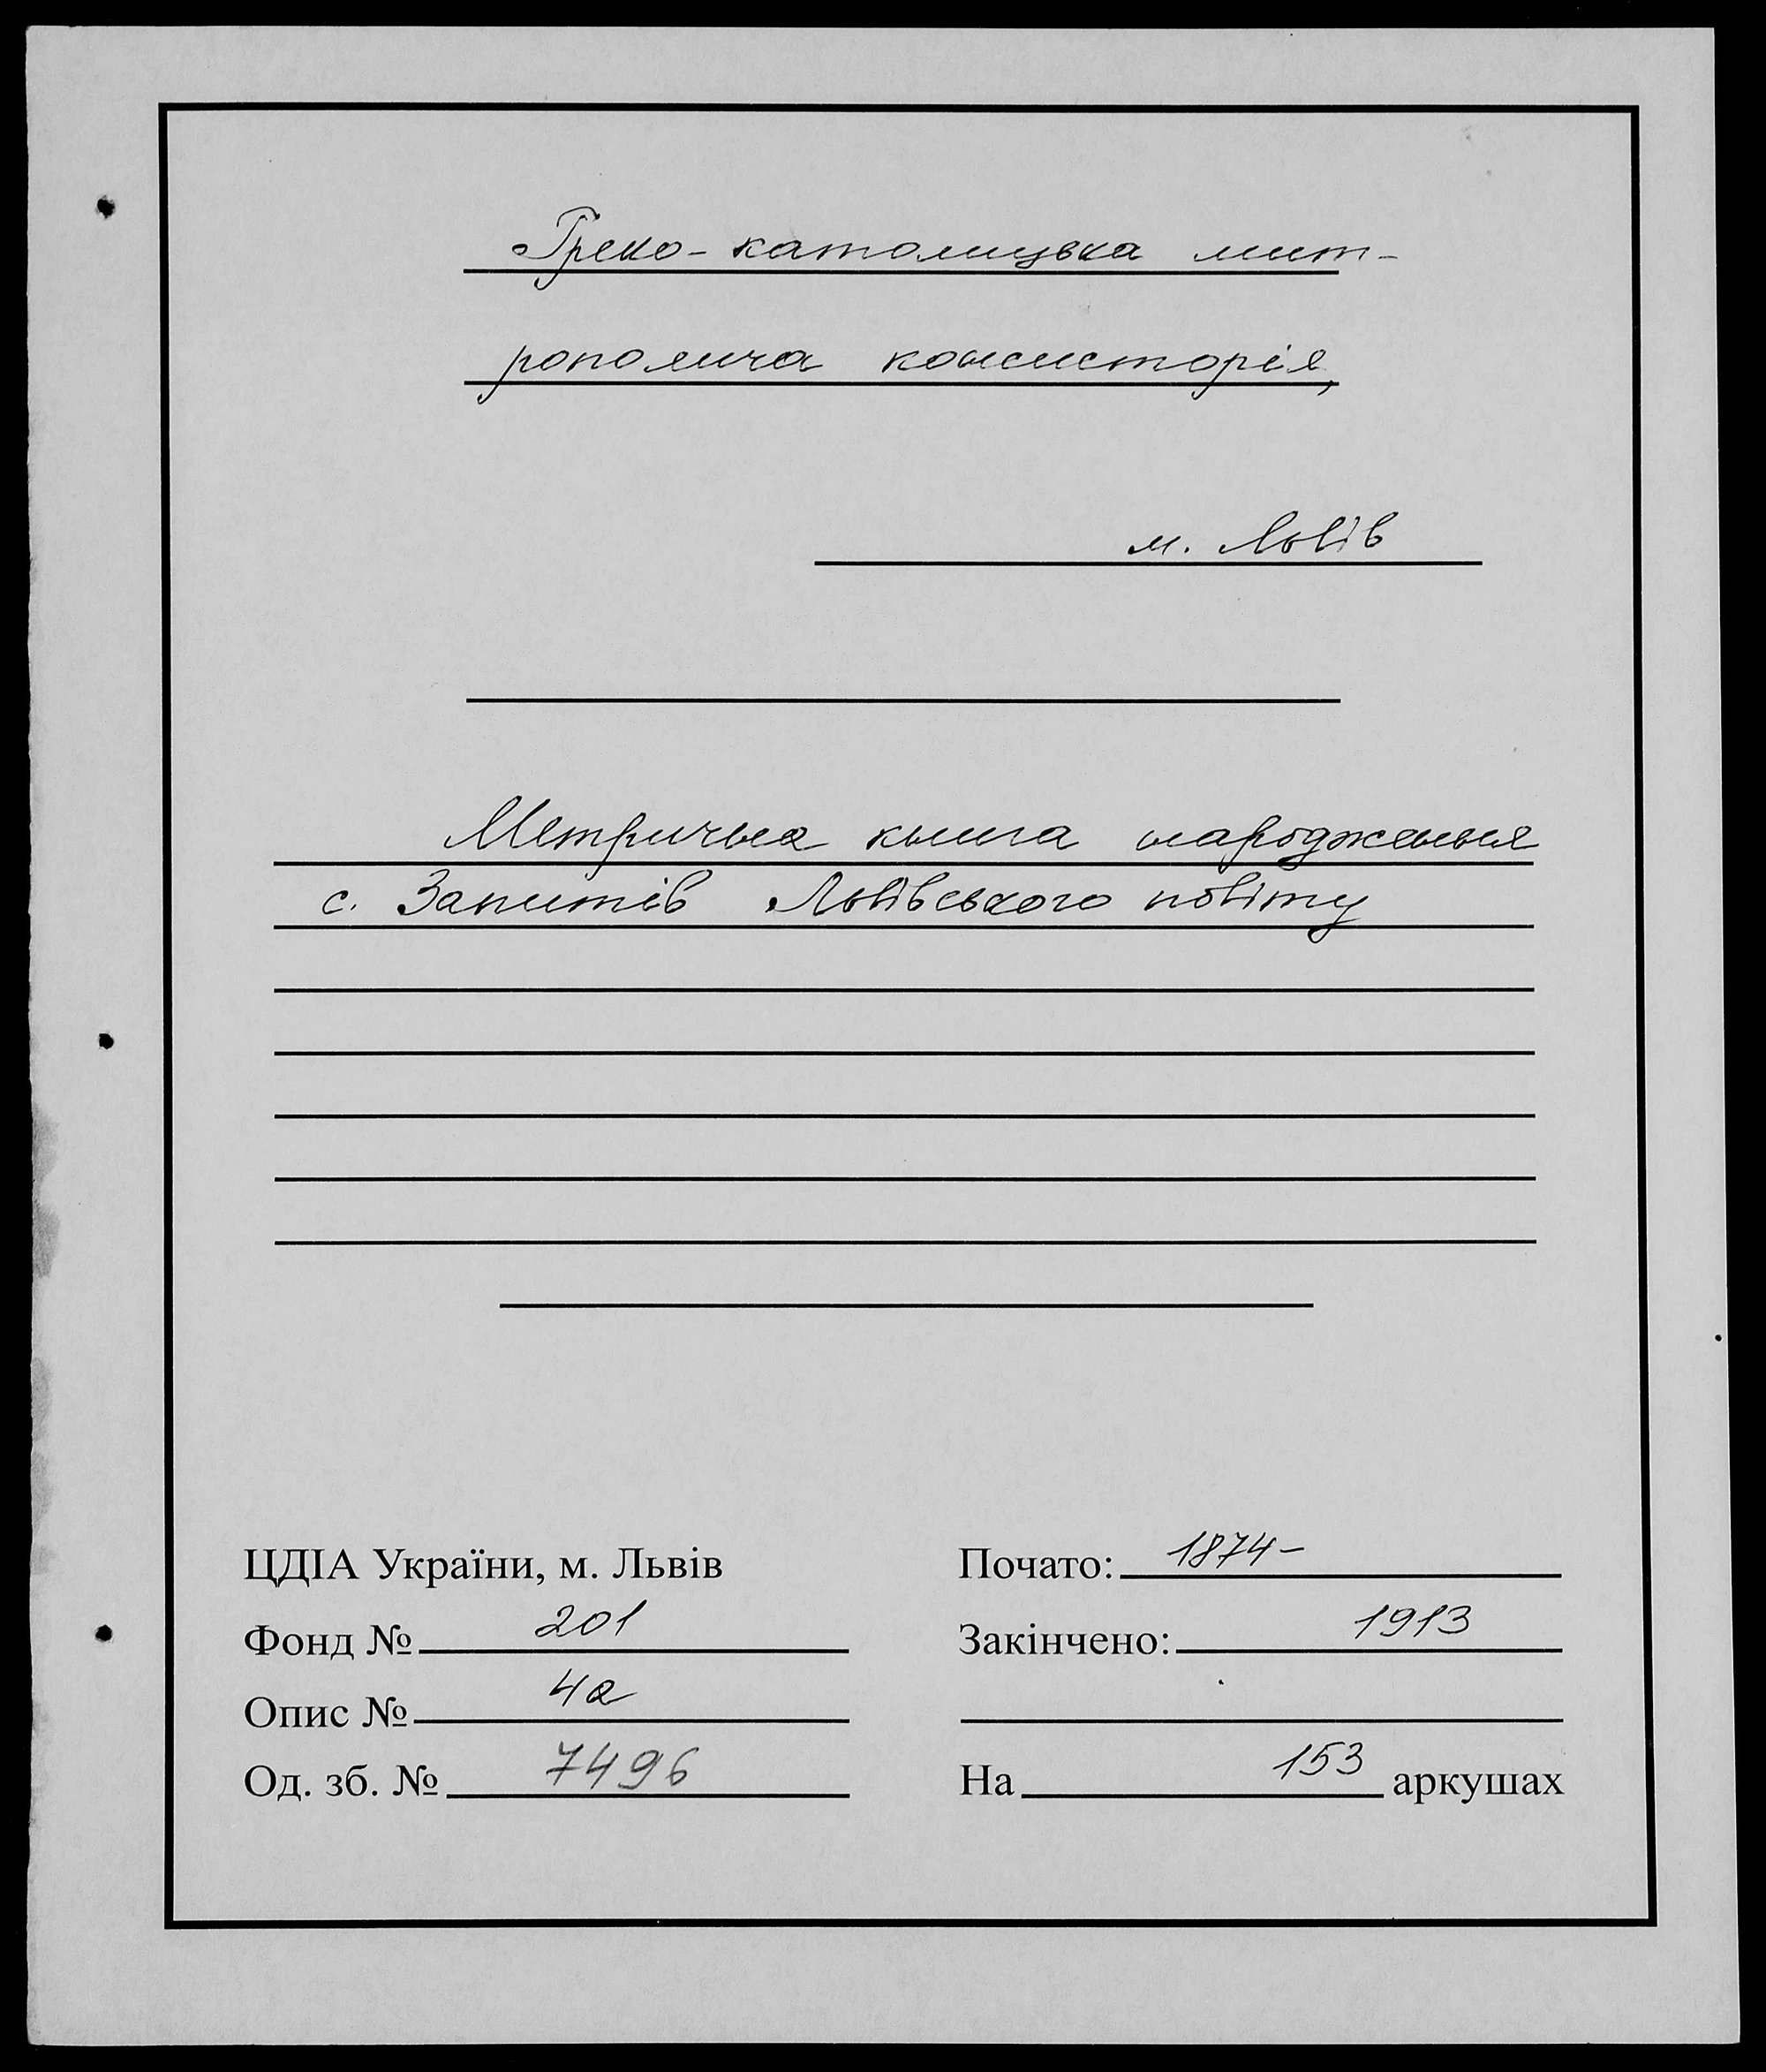 Греко-католицька мит-
рополича консисторія,
м. Львів
Метрична книга народження
с. Запитів Львівського повіту
ЦДІА України, м. Львів
Почато: 1874-
Фонд № 201
Закінчено: 1913
Опис № 4а
Од. зб. № 7496
На 153 аркушах